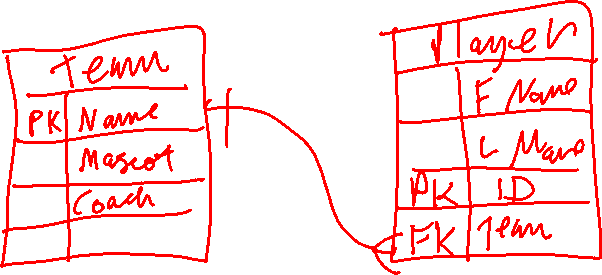 Team
PK Name
Mascot
Coach
Player
F Name
L Name
PK ID
FK Team